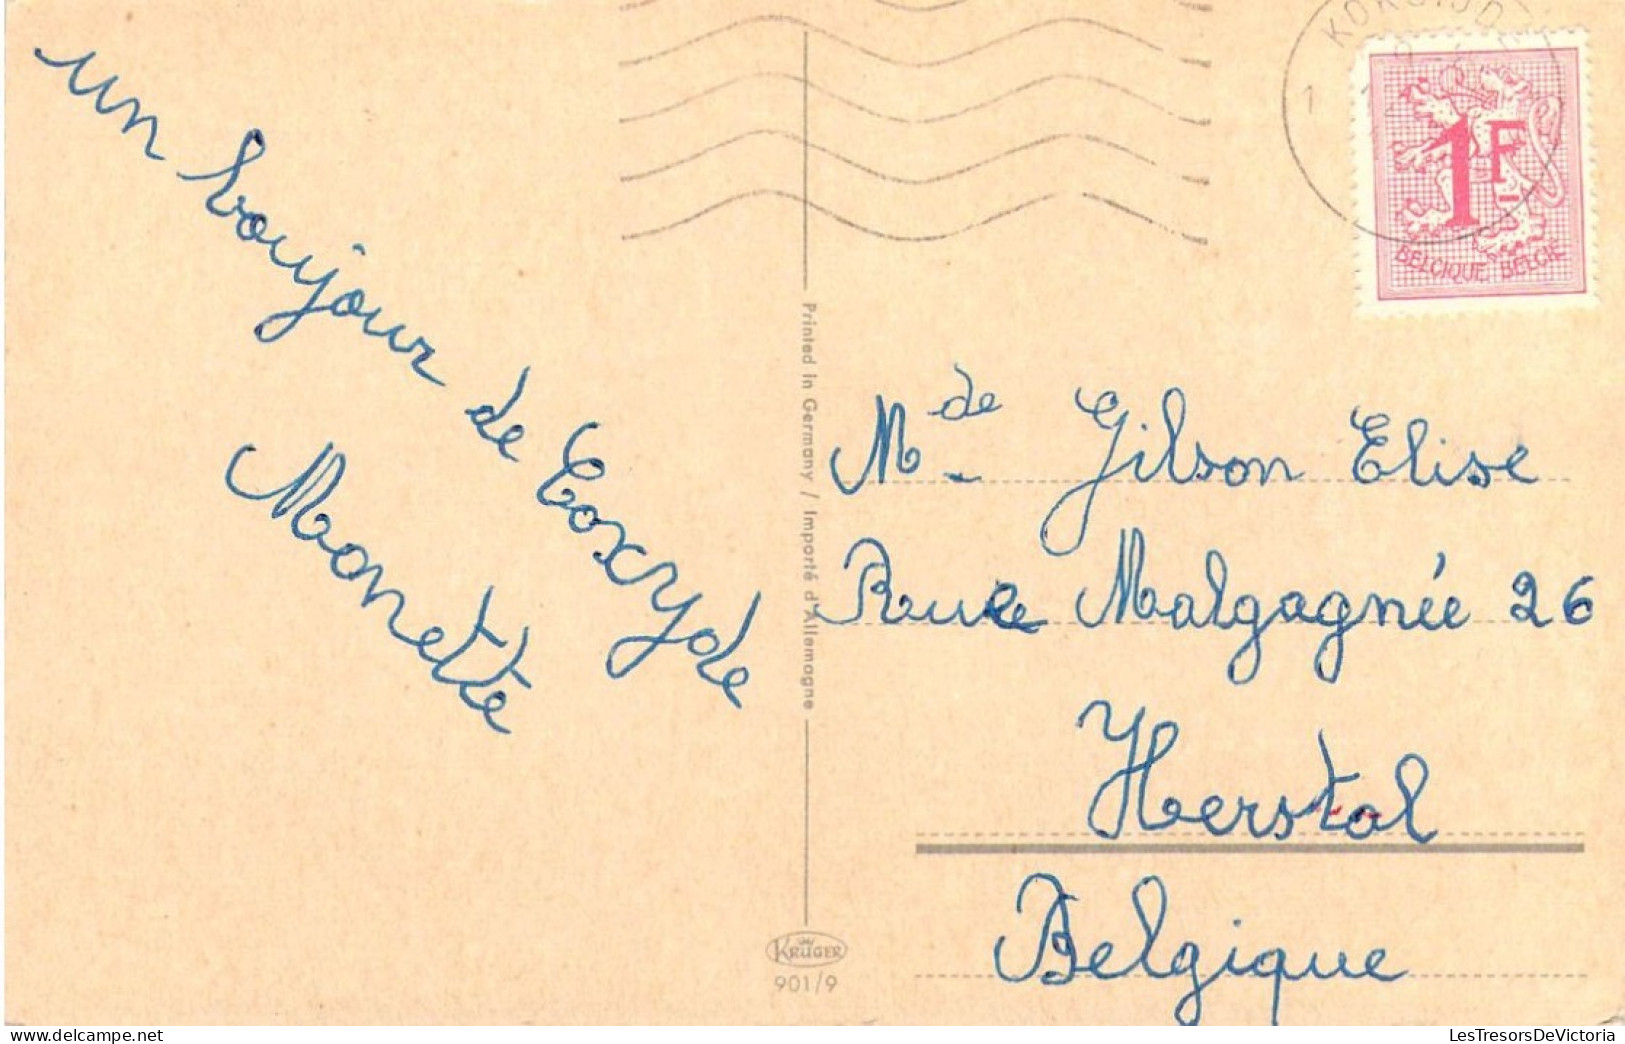 un boujour de Coxyde
Monette
Printed in Germany / Importé d'Allemagne
KRÜGER
901/9
1F
BELGIQUE BELGIE
Mde Gilson Elise
Rue Malgagnée 26
Herstal
Belgique
www.delcampe.net
LesTresorsDeVictoria